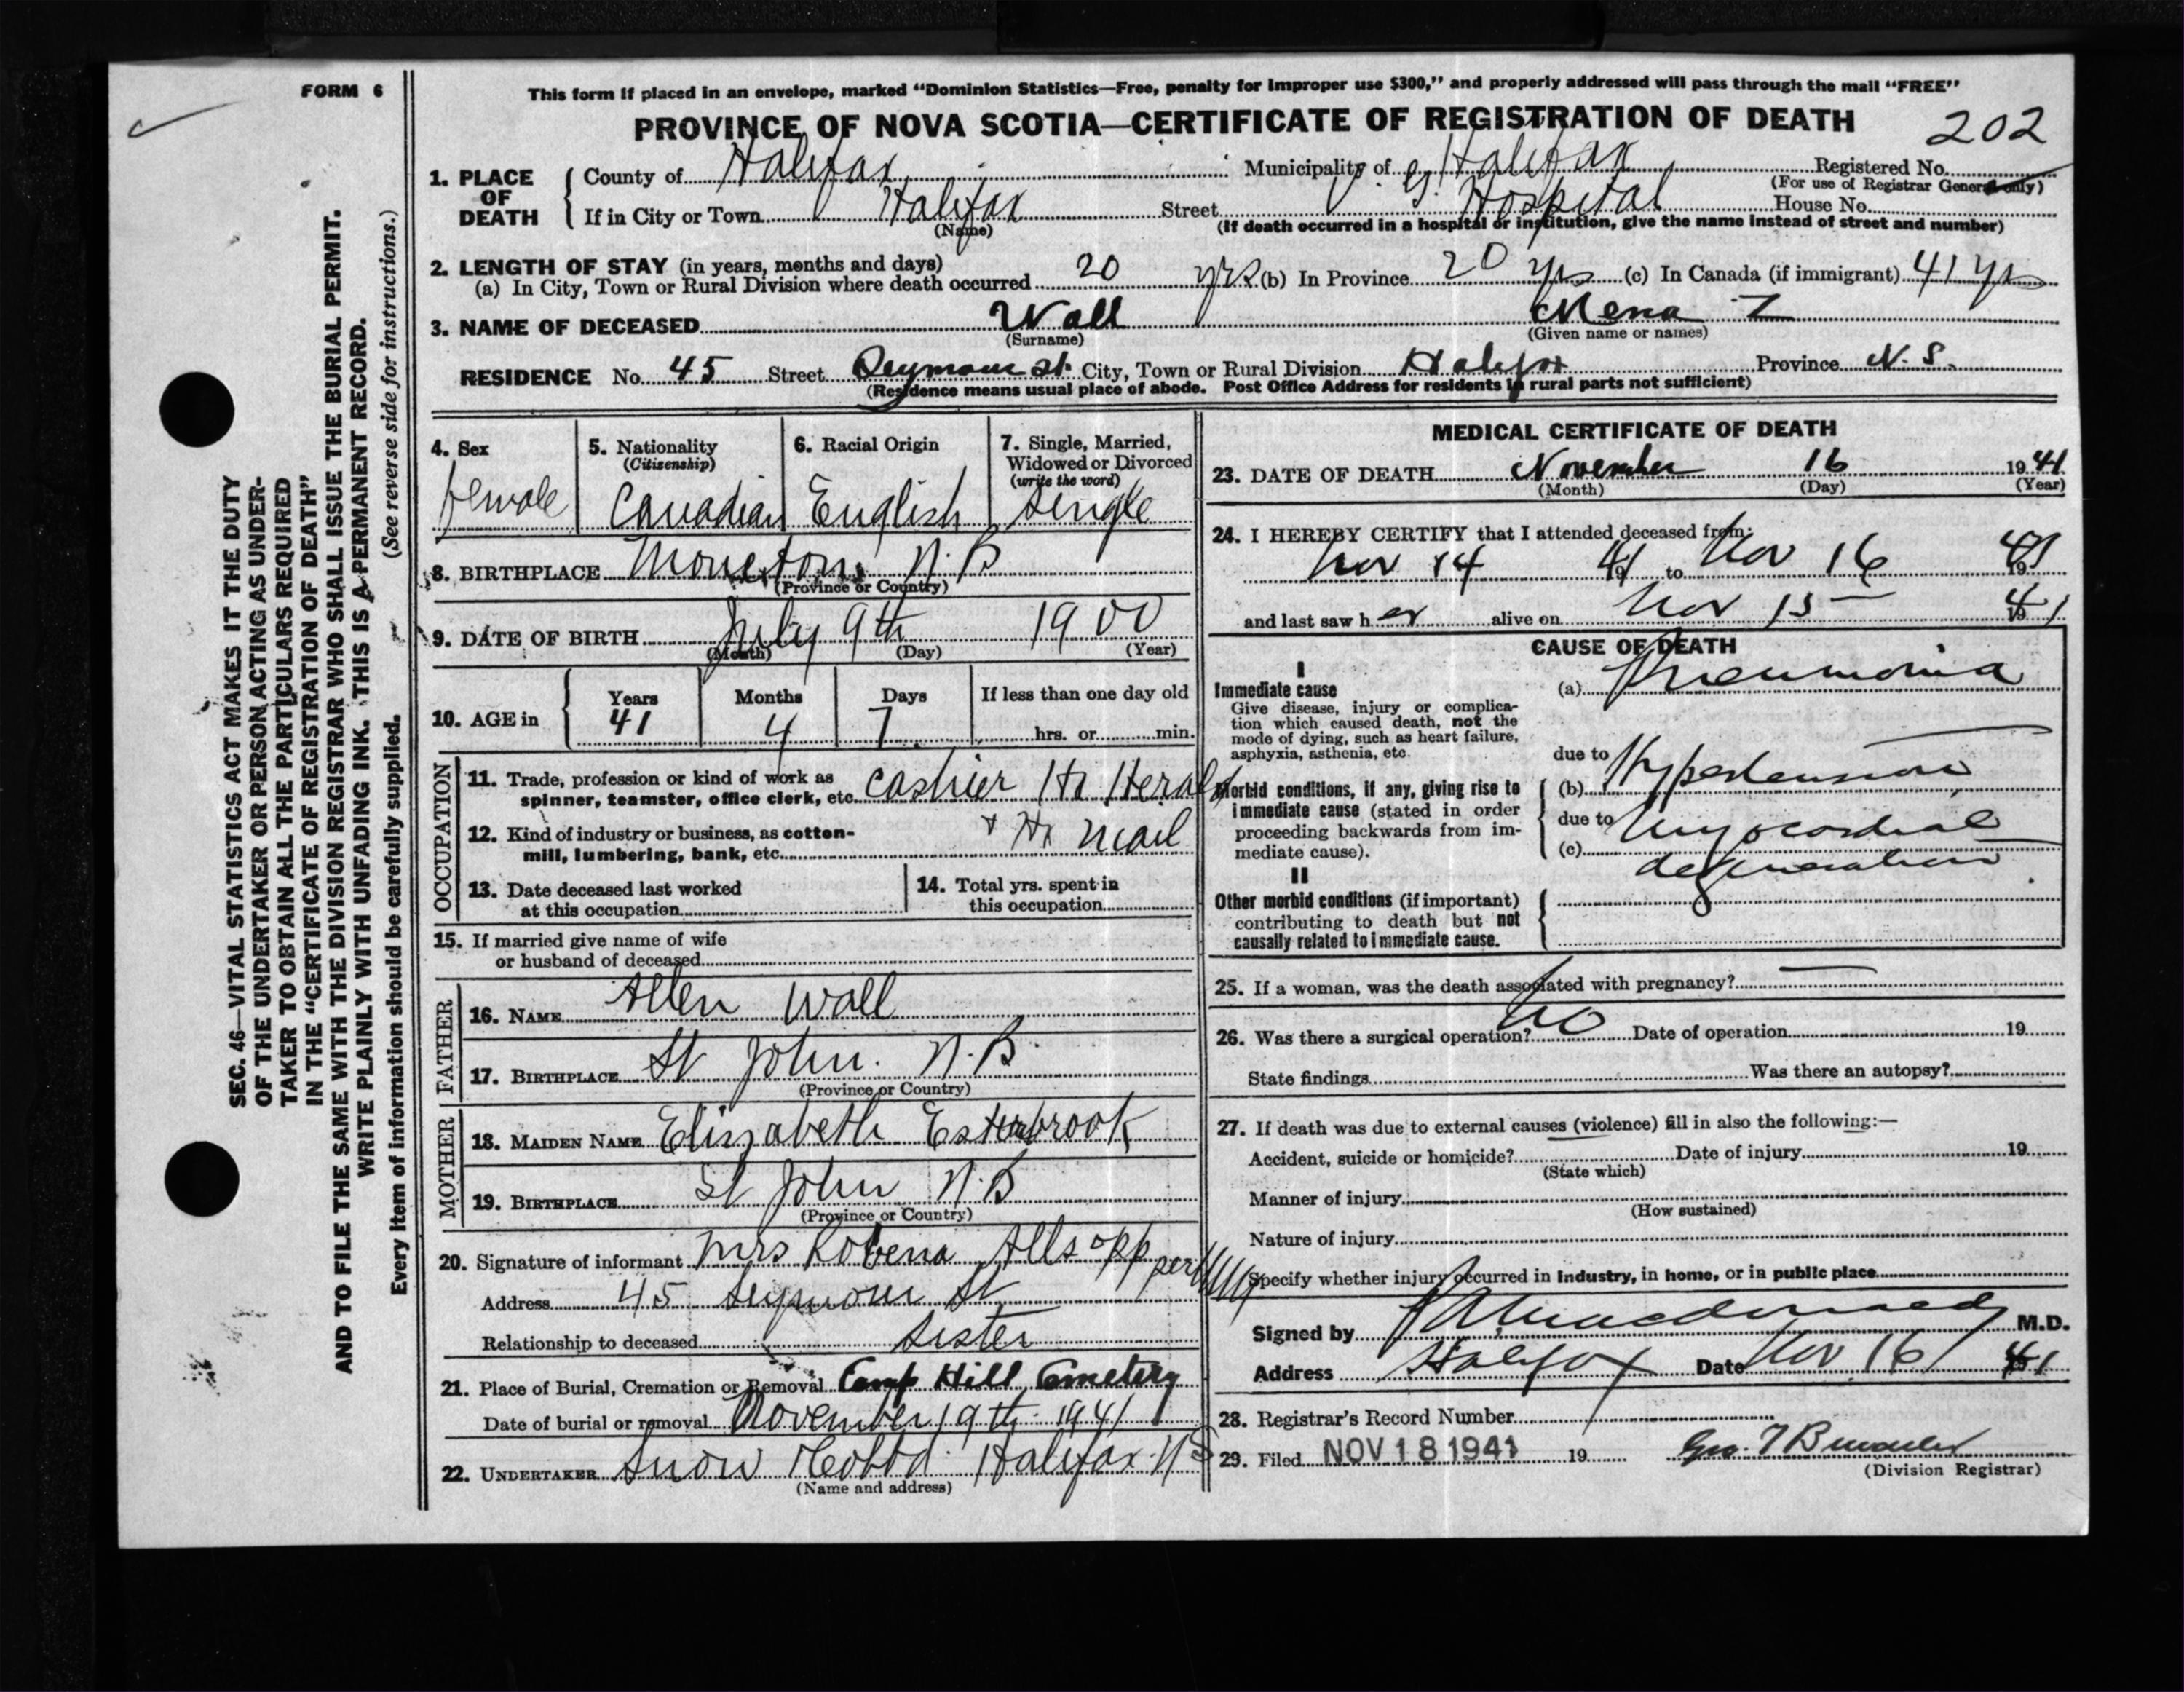 FORM 6
This form if placed in an envelope, marked “Dominion Statistics—Free, penalty for improper use $300,” and properly addressed will pass through the mail “FREE”
PROVINCE OF NOVA SCOTIA—CERTIFICATE OF REGISTRATION OF DEATH 202
1. PLACE OF DEATH County of Halifax Municipality of Halifax Registered No.
(For use of Registrar General only)
If in City or Town Halifax Street V. G. Hospital House No.
(Name) (If death occurred in a hospital or institution, give the name instead of street and number)
2. LENGTH OF STAY (in years, months and days)
(a) In City, Town or Rural Division where death occurred 20 yrs (b) In Province 20 yrs (c) In Canada (if immigrant) 41 yrs
3. NAME OF DECEASED Wall Mena
(Surname) (Given name or names)
RESIDENCE No. 45 Street Seymour St. City, Town or Rural Division Halifax Province N. S.
(Residence means usual place of abode. Post Office Address for residents in rural parts not sufficient)
4. Sex
female
5. Nationality
(Citizenship)
Canadian
6. Racial Origin
English
7. Single, Married,
Widowed or Divorced
(write the word)
Single
8. BIRTHPLACE Moncton, N. B
(Province or Country)
9. DATE OF BIRTH July 9th 1900
(Month) (Day) (Year)
10. AGE in Years Months Days If less than one day old
41 4 7 hrs. or min.
OCCUPATION
11. Trade, profession or kind of work as
spinner, teamster, office clerk, etc. Cashier Hx Herald
12. Kind of industry or business, as cotton-
mill, lumbering, bank, etc. + Hx Mail
13. Date deceased last worked
at this occupation
14. Total yrs. spent in
this occupation
15. If married give name of wife
or husband of deceased
FATHER
16. NAME Allen Wall
17. BIRTHPLACE St John. N. B.
(Province or Country)
MOTHER
18. MAIDEN NAME Elizabeth Esterbrook
19. BIRTHPLACE St John N. B
(Province or Country)
20. Signature of informant Mrs Robena Allsopp per
Address 45 Seymour St
Relationship to deceased Sister
21. Place of Burial, Cremation or Removal Camp Hill Cemetery
Date of burial or removal November 19th 1941
22. UNDERTAKER Snow & Co Ltd. Halifax N S
(Name and address)
MEDICAL CERTIFICATE OF DEATH
23. DATE OF DEATH November 16 1941
(Month) (Day) (Year)
24. I HEREBY CERTIFY that I attended deceased from:
Nov 14 1941 to Nov 16 1941
and last saw her alive on Nov 15 1941
CAUSE OF DEATH
I
Immediate cause
Give disease, injury or complica-
tion which caused death, not the
mode of dying, such as heart failure,
asphyxia, asthenia, etc.
(a) Pneumonia
due to
Morbid conditions, if any, giving rise to
immediate cause (stated in order
proceeding backwards from im-
mediate cause).
(b) Hypertension
due to
(c) Myocardial
degeneration
II
Other morbid conditions (if important)
contributing to death but not
causally related to immediate cause.
25. If a woman, was the death associated with pregnancy? —
26. Was there a surgical operation? No Date of operation 19
State findings Was there an autopsy?
27. If death was due to external causes (violence) fill in also the following:—
Accident, suicide or homicide? Date of injury 19
(State which)
Manner of injury
(How sustained)
Nature of injury
Specify whether injury occurred in industry, in home, or in public place
Signed by Macdonald M.D.
Address Halifax Date Nov 16 1941
28. Registrar's Record Number
29. Filed NOV 18 1941 19
(Division Registrar)
SEC. 46—VITAL STATISTICS ACT MAKES IT THE DUTY
OF THE UNDERTAKER OR PERSON ACTING AS UNDER-
TAKER TO OBTAIN ALL THE PARTICULARS REQUIRED
IN THE “CERTIFICATE OF REGISTRATION OF DEATH”
AND TO FILE THE SAME WITH THE DIVISION REGISTRAR WHO SHALL ISSUE THE BURIAL PERMIT.
WRITE PLAINLY WITH UNFADING INK. THIS IS A PERMANENT RECORD.
Every item of information should be carefully supplied. (See reverse side for instructions.)